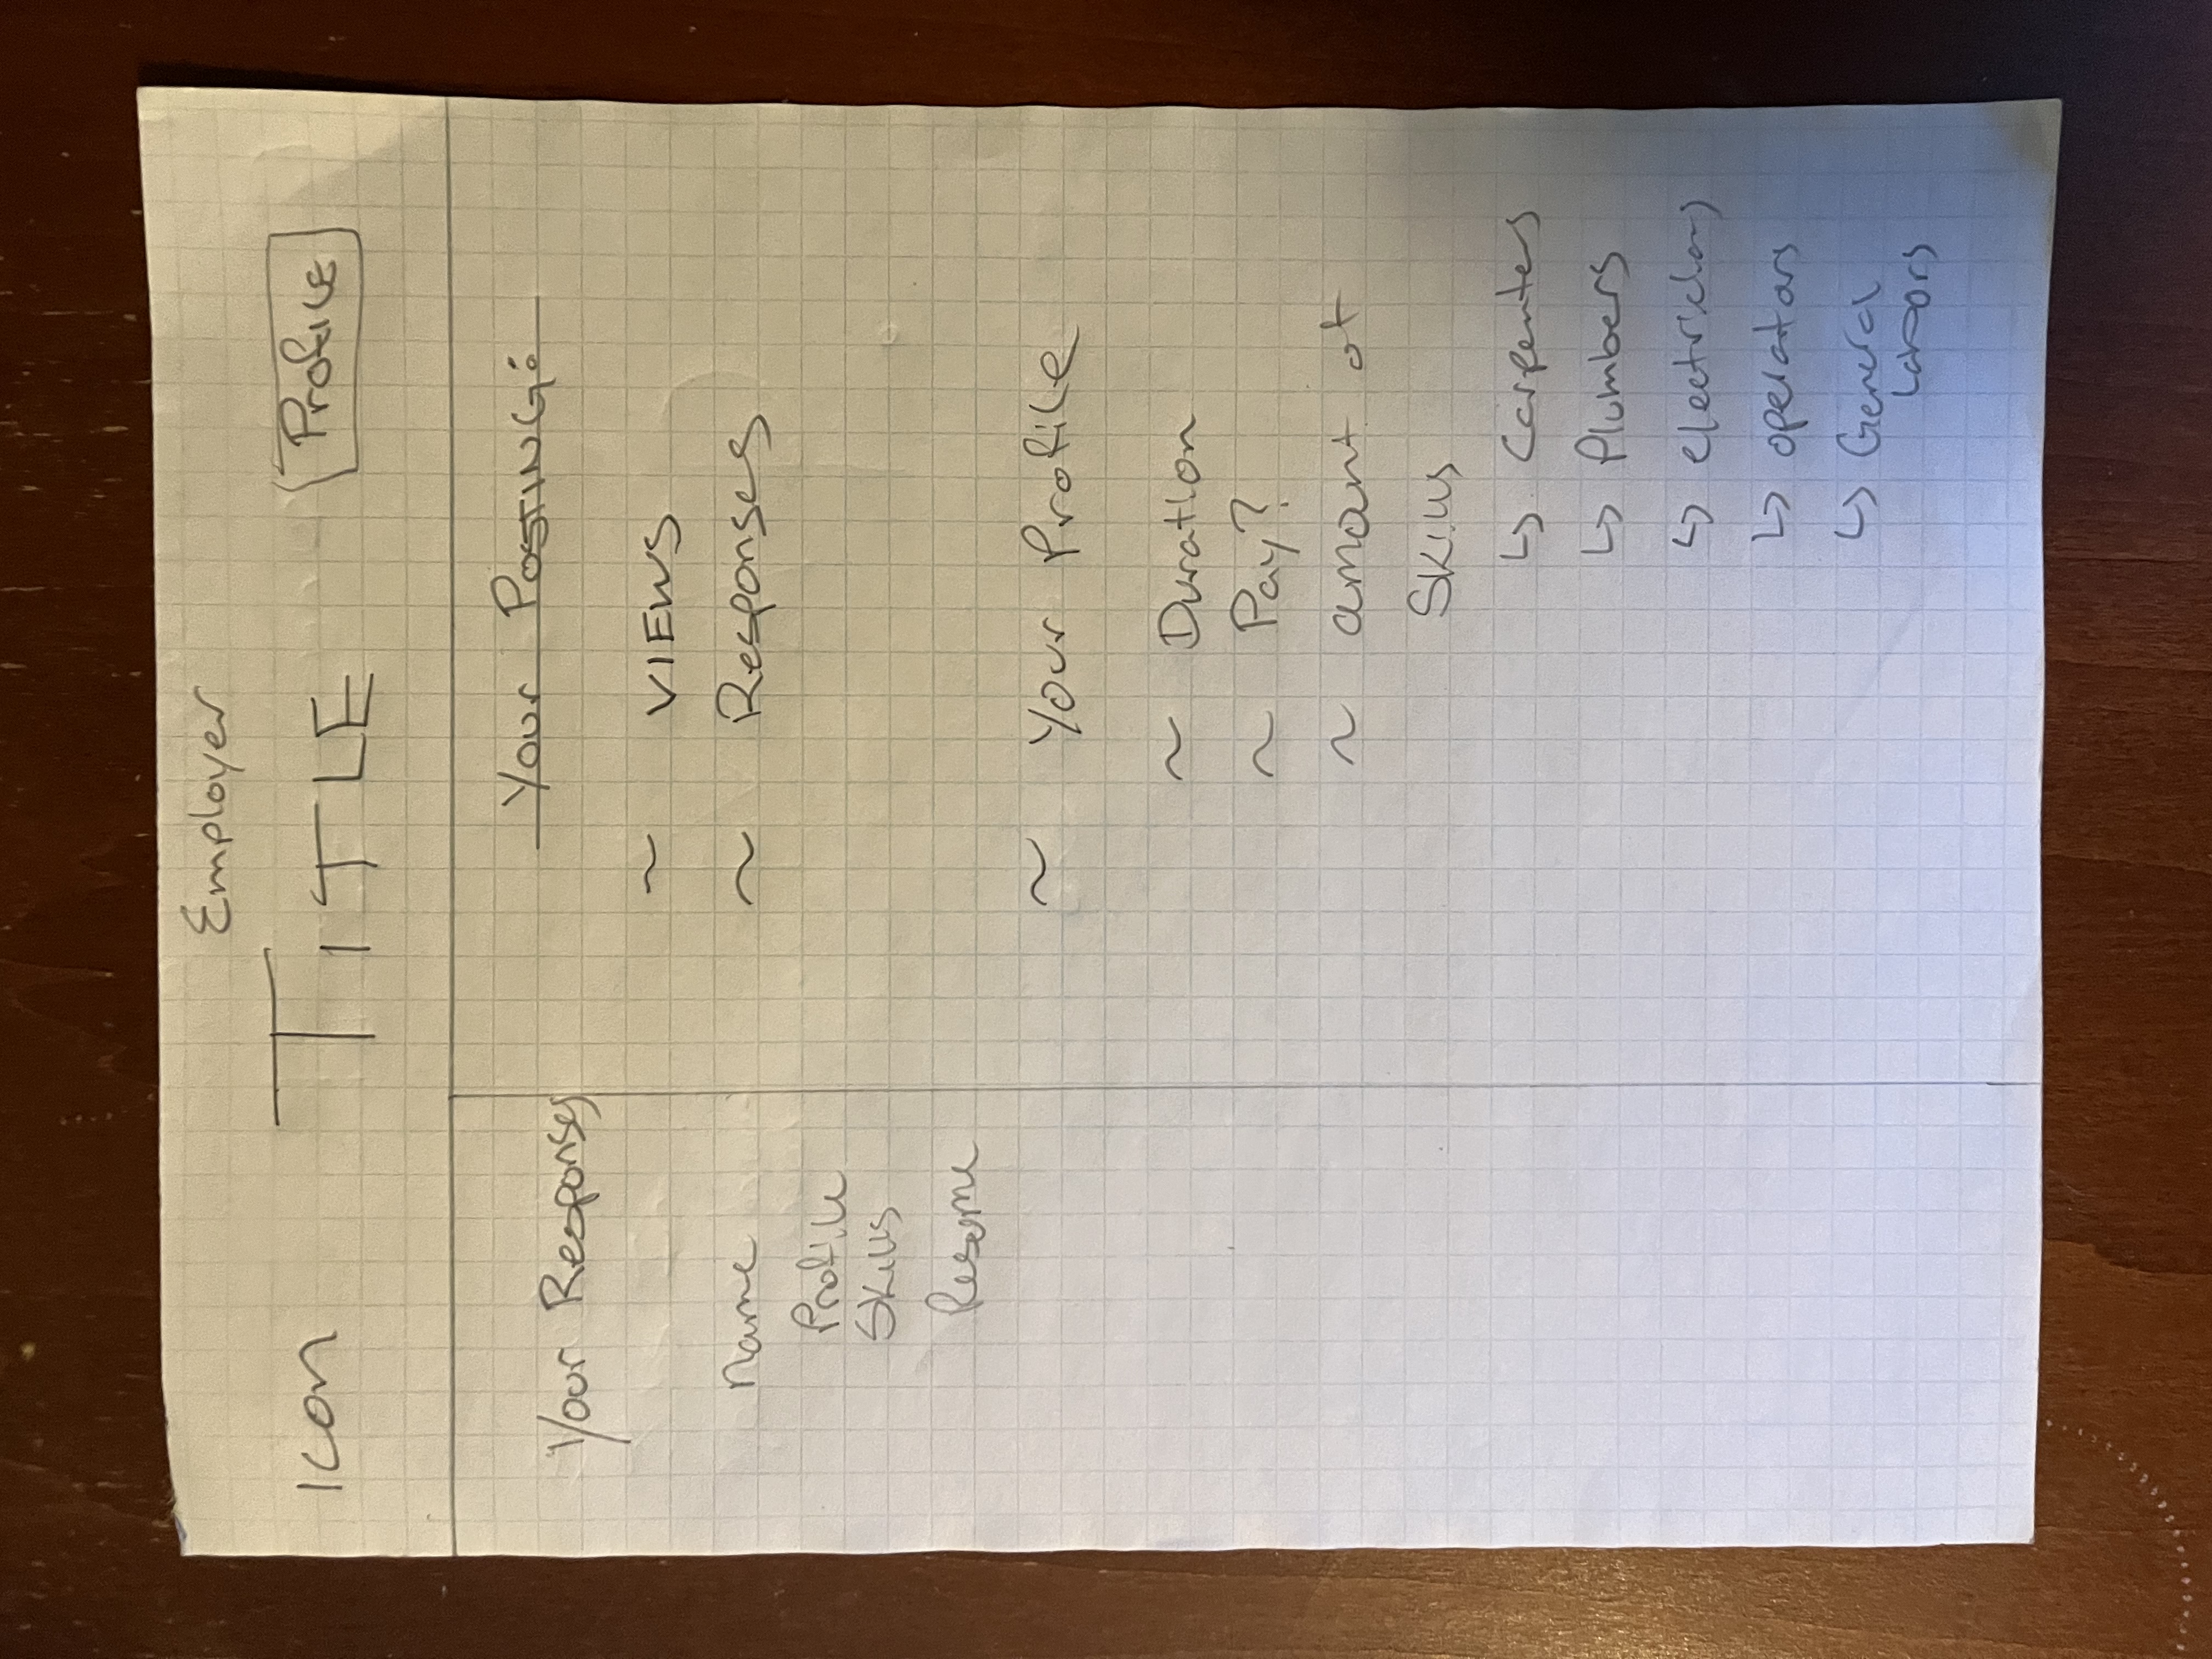 Employer
Icon TITLE Profile
Your Responses
Name
Profile
Skills
Resume
Your POSTING:
~ VIEWS
~ Responses
~ Your Profile
~ Duration
~ Pay?
~ amount of
Skills
↳ Carpenters
↳ Plumbers
↳ electricians
↳ operators
↳ General
Labors